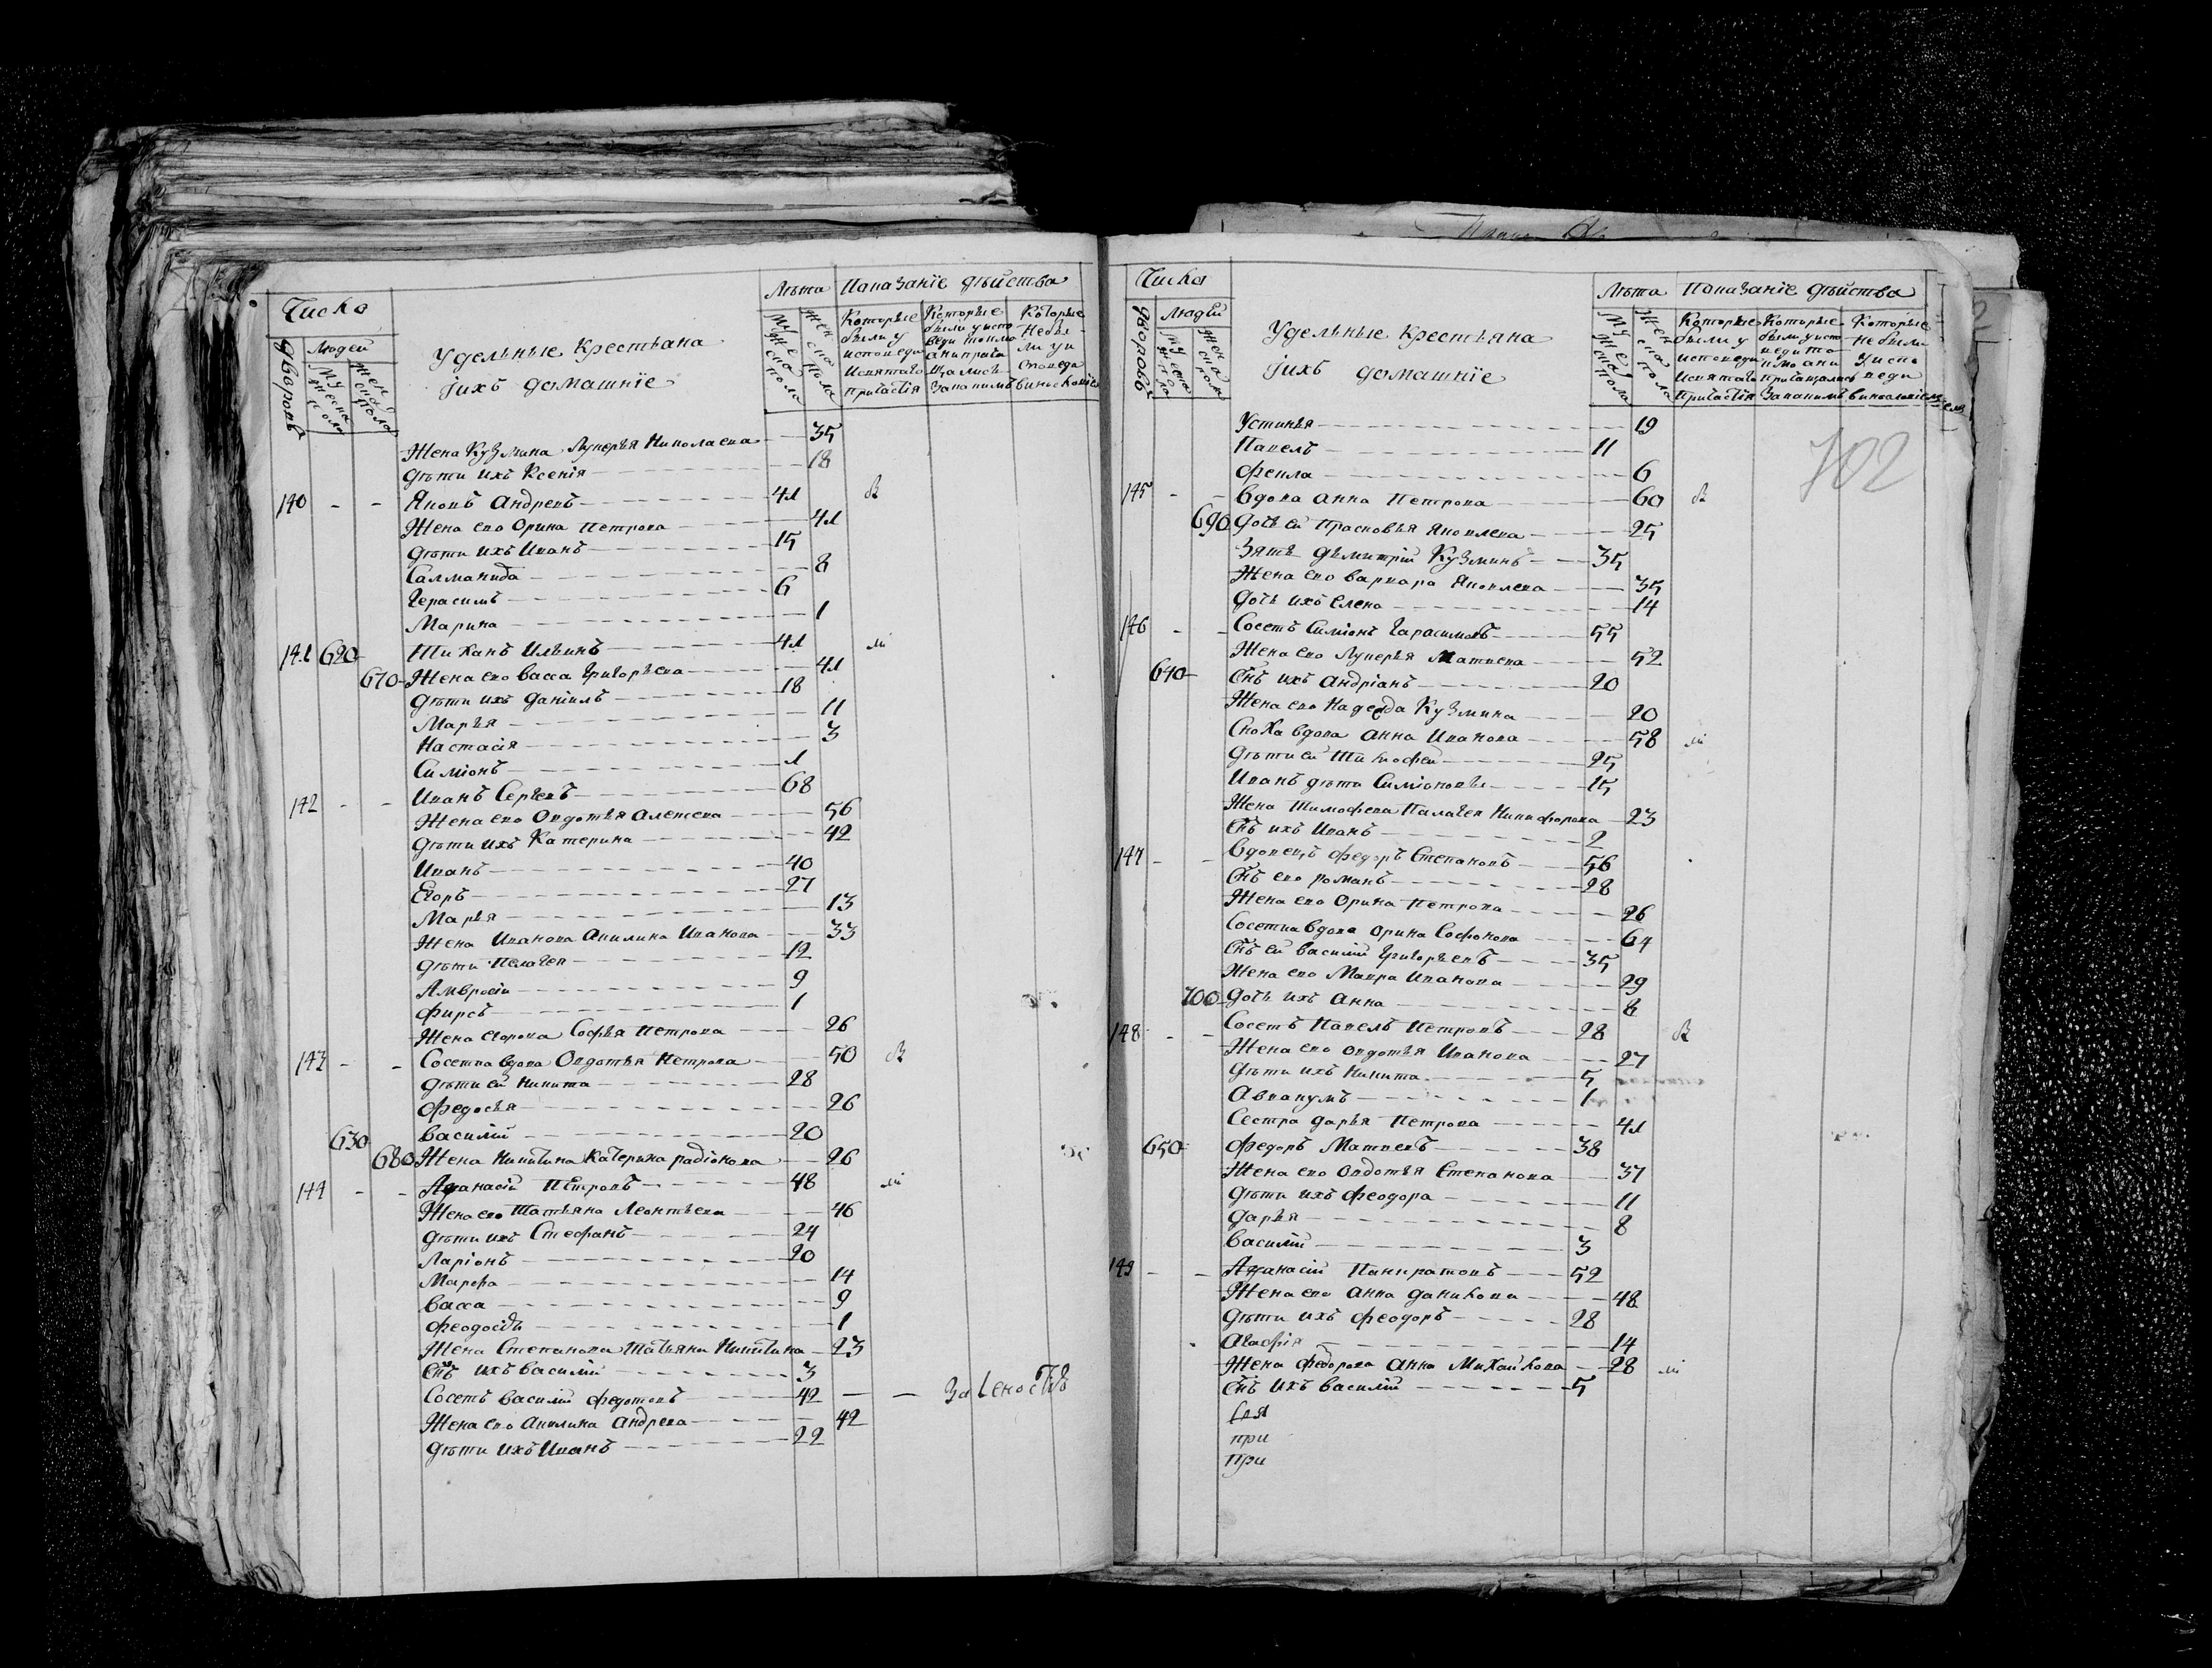 Число
Дворовъ
Людей
Мужеска пола
Женска пола
Удельные Крестьяна
Iихъ домашнїе
Лѣта
Мужеска пола
Женска пола
Показанїе дѣйства
Которые были у исповеди и святаго причастїя
Которые были у исповеди токмо а непричащались и за какимъ
Которые небыли у исповеди
Жена Кузмина Лукерья Николаева 35
дѣти ихъ Ксенія 18
140 - - Яковъ Андревъ 41 В
Жена ево Орина Петрова 41
дѣти ихъ Иванъ 15
Салманида 8
Герасимъ 6
Марина 1
141 620 Тиханъ Ильинъ 41
670 Жена ево Васса Григорьева 41
дѣти ихъ Даніилъ 18
Марья 11
Настасія 3
Симіонъ 1
142 - - Иванъ Сергевъ 68
Жена ево Овдотья Алексева 56
дѣти ихъ Катерина 42
Иванъ 40
Егоръ 27
Марья 13
Жена Иванова Акилина Иванова 33
дѣти Пелагея 12
Амвросіи 9
Фирсъ 1
Жена Егорова Софья Петрова 26
143 - - Сосетка вдова Овдотья Петрова 50 В
дѣти ей Никита 28
Федосья 26
630 Василій 20
680 Жена Никитина Катерина Радіонова 26
144 - - Афанасій Петровъ 48
Жена ево Татьяна Леонтьева 46
дѣти ихъ Стефанъ 24
Ларіонъ 20
Марфа 14
Васса 9
Феодосія 1
Жена Степанова Татьяна Никитина 23
Снъ ихъ Василій 3
Сосетъ Василій Федотовъ 42 — —
Жена ево Акилина Андрева 42
дѣти ихъ Иванъ 22
Числа
Дворовъ
Людей
Мужеска пола
Женска пола
Удельные Крестьяна
Iихъ домашнїе
Лѣта
Мужеска пола
Женска пола
Показанїе дѣйства
Которые были у исповеди и святаго причастїя
Которые были у исповеди токмо а ни причащались за какимъ
Которые небыли у исповеди
702
Устинья 19
Павелъ 11
Фекла 6
145 - - Вдова Анна Петрова 60 В
690 Дочь ей Прасковья Яковлева 25
Зять Дъмитрій Кузминъ 35
Жена ево Варвара Яковлева 35
Дочь ихъ Елена 14
146 - - Сосетъ Симіонъ Гарасимовъ 55
Жена ево Лукерья Матвева 52
640 Снъ ихъ Андріанъ 20
Жена ево Надежда Кузмина 20
Сноха вдова Анна Иванова 58
Дѣти ей Тимофей 25
Иванъ дѣти Симіоновы 15
Жена Тимофева Палагея Никифорова 23
Снъ ихъ Иванъ 2
147 - - Вдовецъ Федоръ Степановъ 56
Снъ ево Романъ 28
Жена ево Орина Петрова 26
Сосетка вдова Орина Софонова 64
Снъ ей Василій Григорьевъ 35
Жена ево Мавра Иванова 29
700 Дочь ихъ Анна 8
148 - - Сосетъ Павелъ Петровъ 28 В
Жена ево Овдотья Иванова 27
Дѣти ихъ Никита 5
Аввакумъ 1
Сестра Дарья Петрова 41
650 Федоръ Матвевъ 38
Жена ево Овдотья Степанова 37
Дѣти ихъ Феодора 11
Дарья 8
Василій 3
149 - - Афанасій Панкратовъ 52
Жена ево Анна Данилова 48
Дѣти ихъ Феодоръ 28
Агафія 14
Жена Федорова Анна Михайлова 28
Снъ ихъ Василій 5
при
при